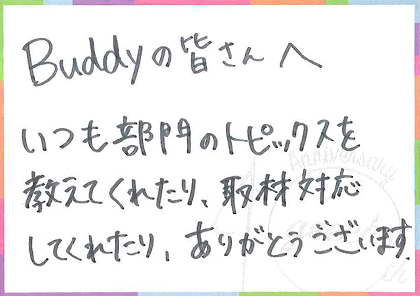 Buddyの皆さんへ
いつも部門のトピックスを
教えてくれたり、取材対応
してくれたり、ありがとうございます
Anniversary
th